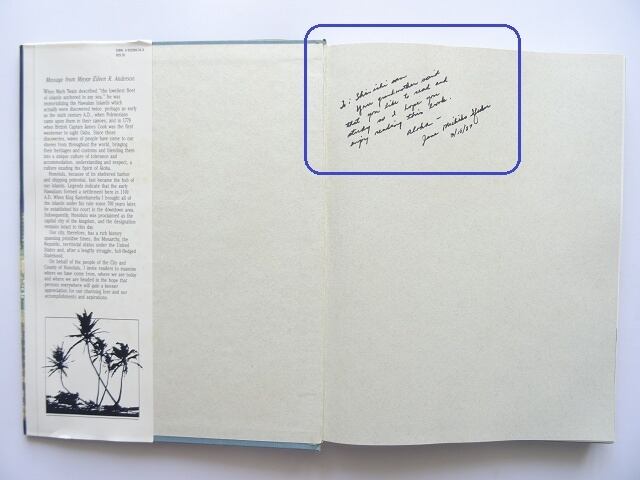 Message from Mayor Eileen R. Anderson
When Mark Twain described "the loveliest fleet
of islands anchored in any sea," he was
memorializing the Hawaiian Islands which
actually were discovered twice: perhaps as early
as the sixth century A.D., when Polynesians
came upon them in their canoes; and in 1778
when British Captain James Cook was the first
westerner to sight Oahu. Since those
discoveries, waves of people have come to our
shores from throughout the world, bringing
their heritages and customs and blending them
into a unique culture of tolerance and
accommodation, understanding and respect, a
culture exuding the Spirit of Aloha.
Honolulu, because of its sheltered harbor
and shipping potential, fast became the hub of
our islands. Legends indicate that the early
Hawaiians formed a settlement here in 1100
A.D. When King Kamehameha I brought all of
the islands under his rule some 700 years later,
he established his court in the downtown area.
Subsequently, Honolulu was proclaimed as the
capital city of the kingdom, and the designation
remains intact to this day.
Our city, therefore, has a rich history
spanning primitive times, the Monarchy, the
Republic, territorial status under the United
States and, after a lengthy struggle, full-fledged
Statehood.
On behalf of the people of the City and
County of Honolulu, I invite readers to examine
where we have come from, where we are today
and where we are headed in the hope that
persons everywhere will gain a keener
appreciation for our charming lore and our
accomplishments and aspirations.
To: Shinichi san
Your grandmother said
that you like to read and
study so I hope you
enjoy reading this book.
Aloha -
Jane Michiko